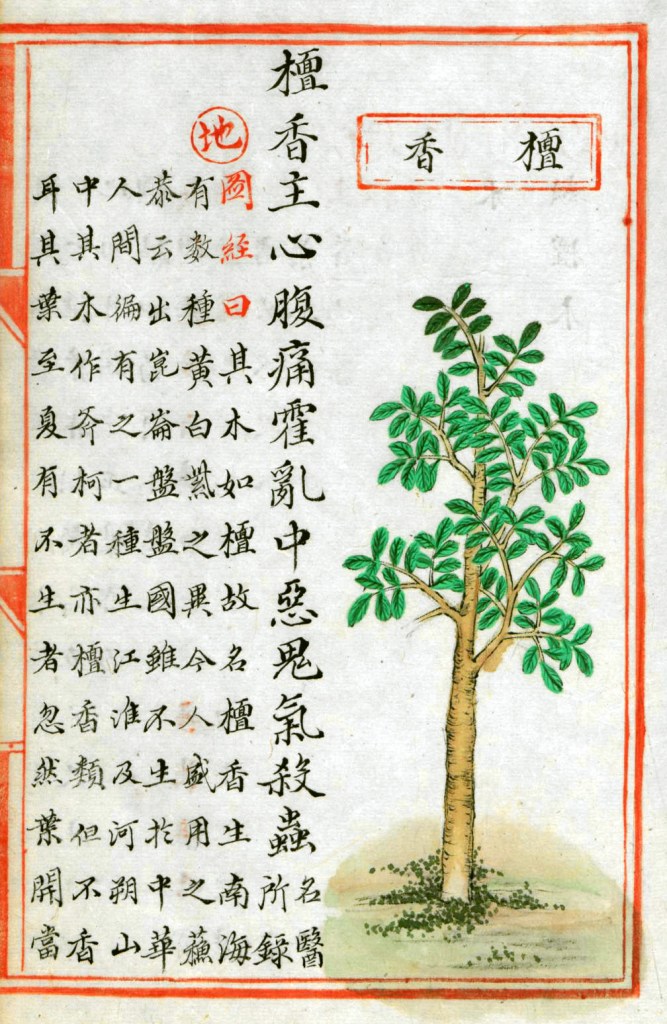 檀香
檀香主心腹痛霍亂中惡鬼氣殺蟲名醫所錄
地
圖經曰其木如檀故名檀香生南海
有数種黄白紫之異今人盛用之蘓
恭云出崑崙盤盤國雖不生於中華
人間徧有之一種生江淮及河朔山
中其木作斧柯者亦檀香類但不香
耳其葉至夏有不生者忽然葉開當